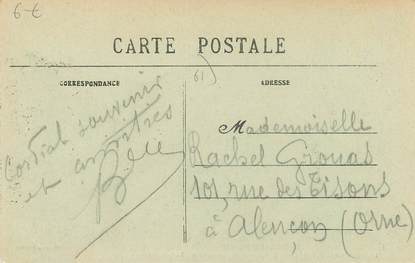 6-€
CARTE POSTALE
CORRESPONDANCE
61)
ADRESSE
Cordial souvenir
et amitiés
Mademoiselle
Rachel Grouas
101, rue des Tisons
à Alençon (Orne)